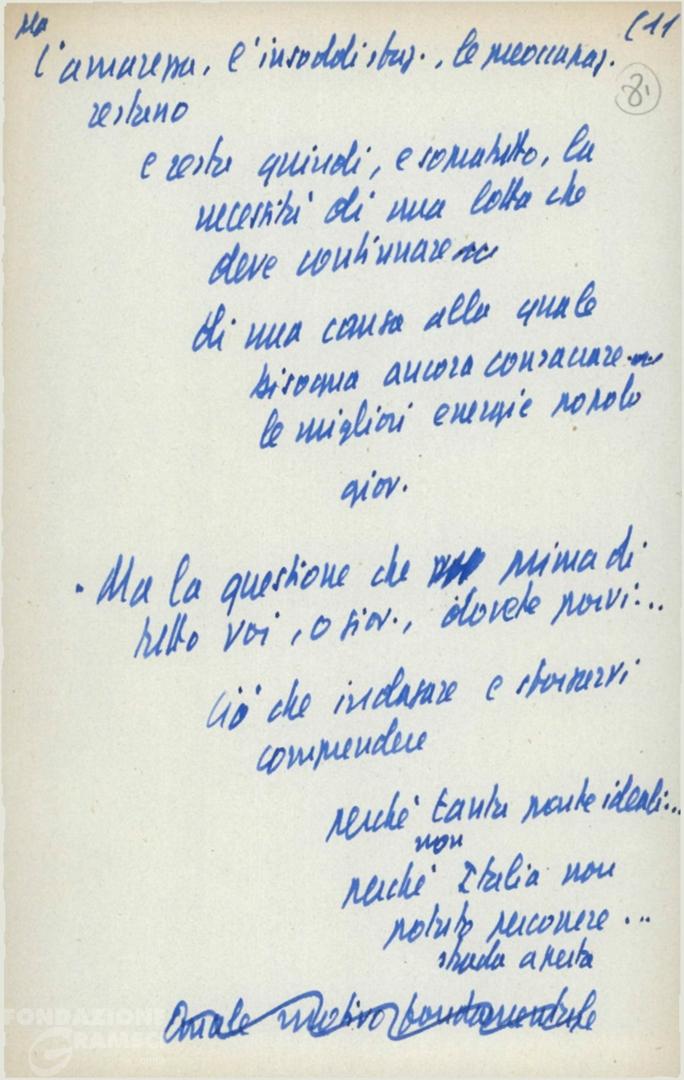 Ma (11
l'amarezza, l'insoddisfaz., le preoccupaz.
8'
restano
e resta quindi, e sopratutto, la
necessità di una lotta che
deve continuare
di una causa alla quale
bisogna ancora consacrare
le migliori energie popolo
giov.
· Ma la questione che prima di
tutto voi, o giov., dovete porvi...
Ciò che indagare e sforzarvi
comprendere
perché tante mete ideali...
non
perché Italia non
potuto percorrere ...
strada aperta
Quale motivo fondamentale
FONDAZIONE
GRAMSCI